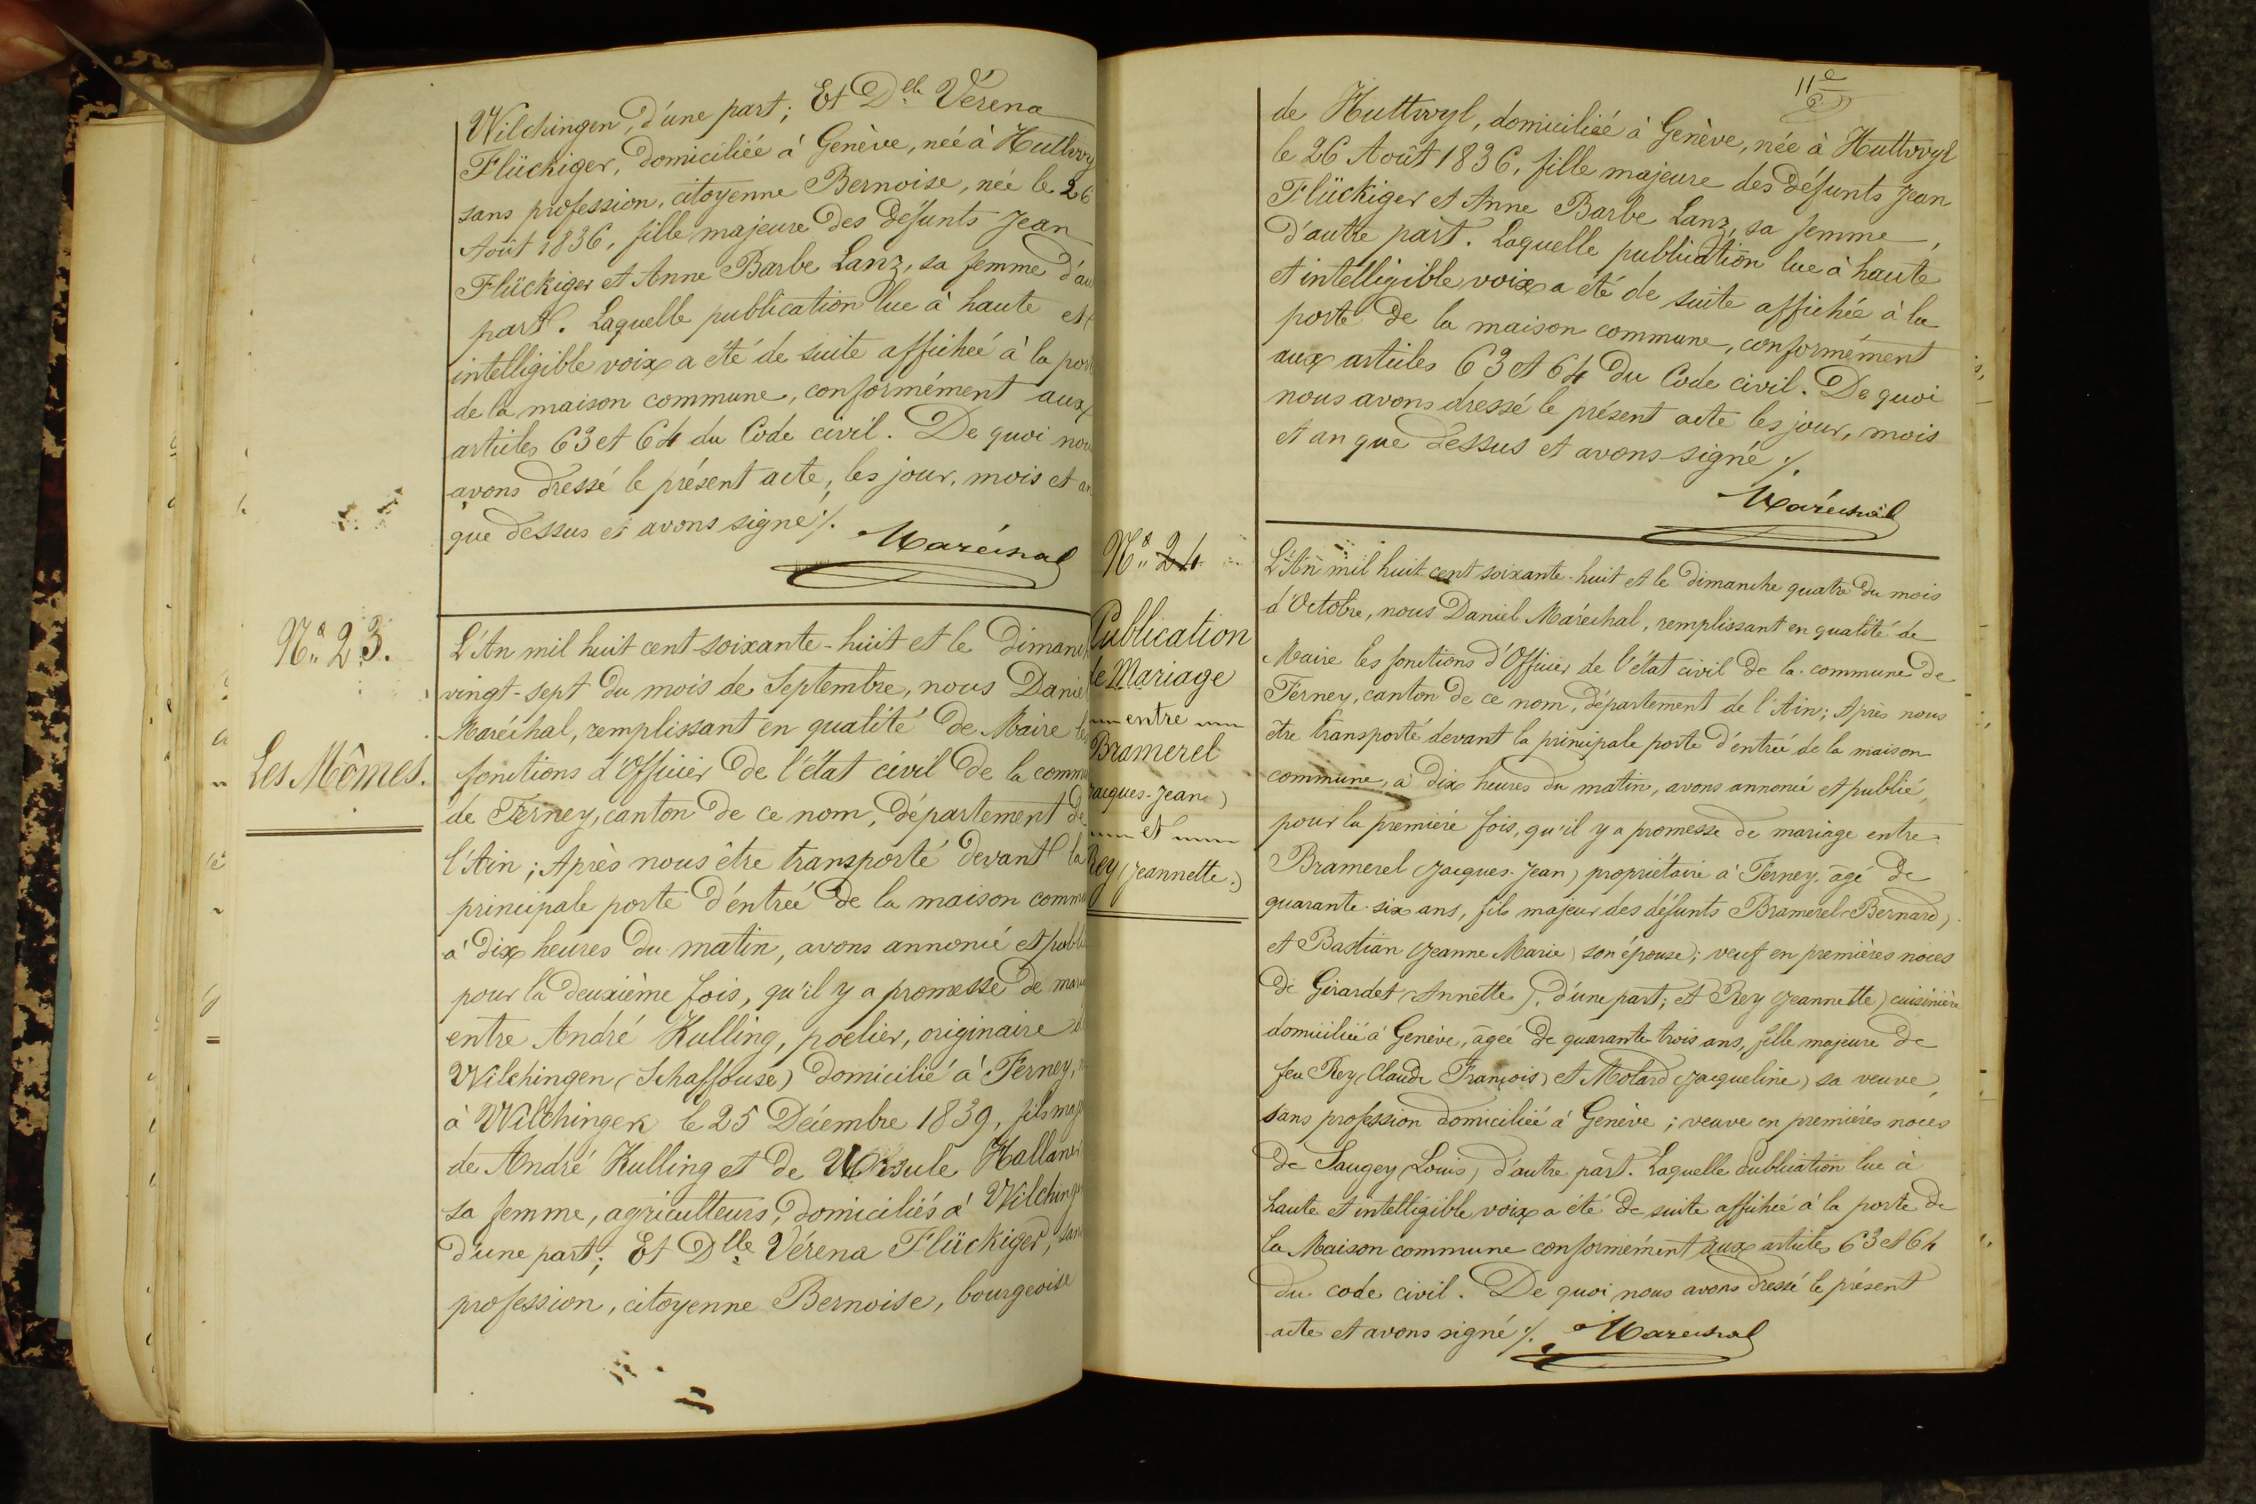 Wilchingen, d'une part; Et Dlle Vérena
Flückiger, domiciliée à Genève, née à Huttwy
sans profession, citoyenne Bernoise, née le 26
Août 1836, fille majeure des défunts Jean
Flückiger et Anne Barbe Lanz, sa femme d'au
part. Laquelle publication lue à haute et
intelligible voix a été de suite affichée à la por
de la maison commune, conformément aux
articles 63 et 64 du Code civil. De quoi nou
avons dressé le présent acte, les jour, mois et a
que dessus et avons signé ./.
Maréchal
No 23.
Les Mêmes.
L'An mil huit cent soixante-huit et le Dimanch
vingt-sept du mois de Septembre, nous Daniel
Maréchal, remplissant en qualité de Maire les
fonctions d'Officier de l'état civil de la commu
de Ferney, canton de ce nom, département de
l'Ain; Après nous être transporté devant la
principale porte d'entrée de la maison commu
à dix heures du matin, avons annoncé et publi
pour la deuxième fois, qu'il y a promesse de mari
entre André Kulling, poëlier, originaire d
Wilchingen (Schaffouse) domicilié à Ferney, n
à Wilchingen le 25 Décembre 1839, fils maj
de André Kulling et de Ursule Hallaner
sa femme, agriculteurs, domiciliés à Wilching
d'une part; Et Dlle Vérena Flückiger, sans
profession, citoyenne Bernoise, bourgeoise
11e
de Huttwyl, domiciliée à Genève, née à Huttwyl
le 26 Août 1836, fille majeure des défunts Jean
Flückiger et Anne Barbe Lanz, sa femme,
d'autre part. Laquelle publication lue à haute
et intelligible voix a été de suite affichée à la
porte de la maison commune, conformément
aux articles 63 et 64 du Code civil. De quoi
nous avons dressé le présent acte les jour, mois
et an que dessus et avons signé ./.
Maréchal
No 24
Publication
de Mariage
entre
Bramerel
Jacques-Jean)
et
Rey (Jeannette.)
L'An mil huit cent soixante-huit et le dimanche quatre du mois
d'Octobre, nous Daniel Maréchal, remplissant en qualité de
Maire les fonctions d'Officier de l'état civil de la commune de
Ferney, canton de ce nom, département de l'Ain; Après nous
être transporté devant la principale porte d'entrée de la maison
commune, à dix heures du matin, avons annoncé et publié,
pour la première fois, qu'il y a promesse de mariage entre
Bramerel (Jacques-Jean) propriétaire à Ferney, âgé de
quarante-six ans, fils majeur des défunts Bramerel (Bernard)
et Bastian (Jeanne Marie) son épouse; veuf en premières noces
de Girardet (Annette), d'une part; et Rey (Jeannette) cuisinière
domiciliée à Genève, âgée de quarante-trois ans, fille majeure de
feu Rey (Claude François) et Molard (Jacqueline) sa veuve,
sans profession domiciliée à Genève; veuve en premières noces
de Saugey (Louis) d'autre part. Laquelle publication lue à
haute et intelligible voix a été de suite affichée à la porte de
la Maison commune conformément aux articles 63 et 64
du code civil. De quoi nous avons dressé le présent
acte et avons signé ./. Maréchal